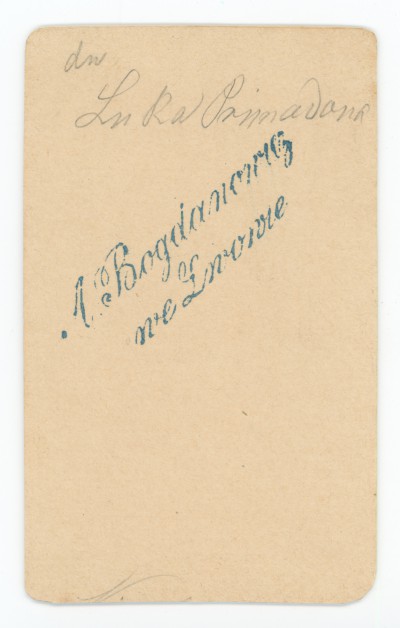 de
Luka Primadona
A. Bogdanowicz
we Lwowie